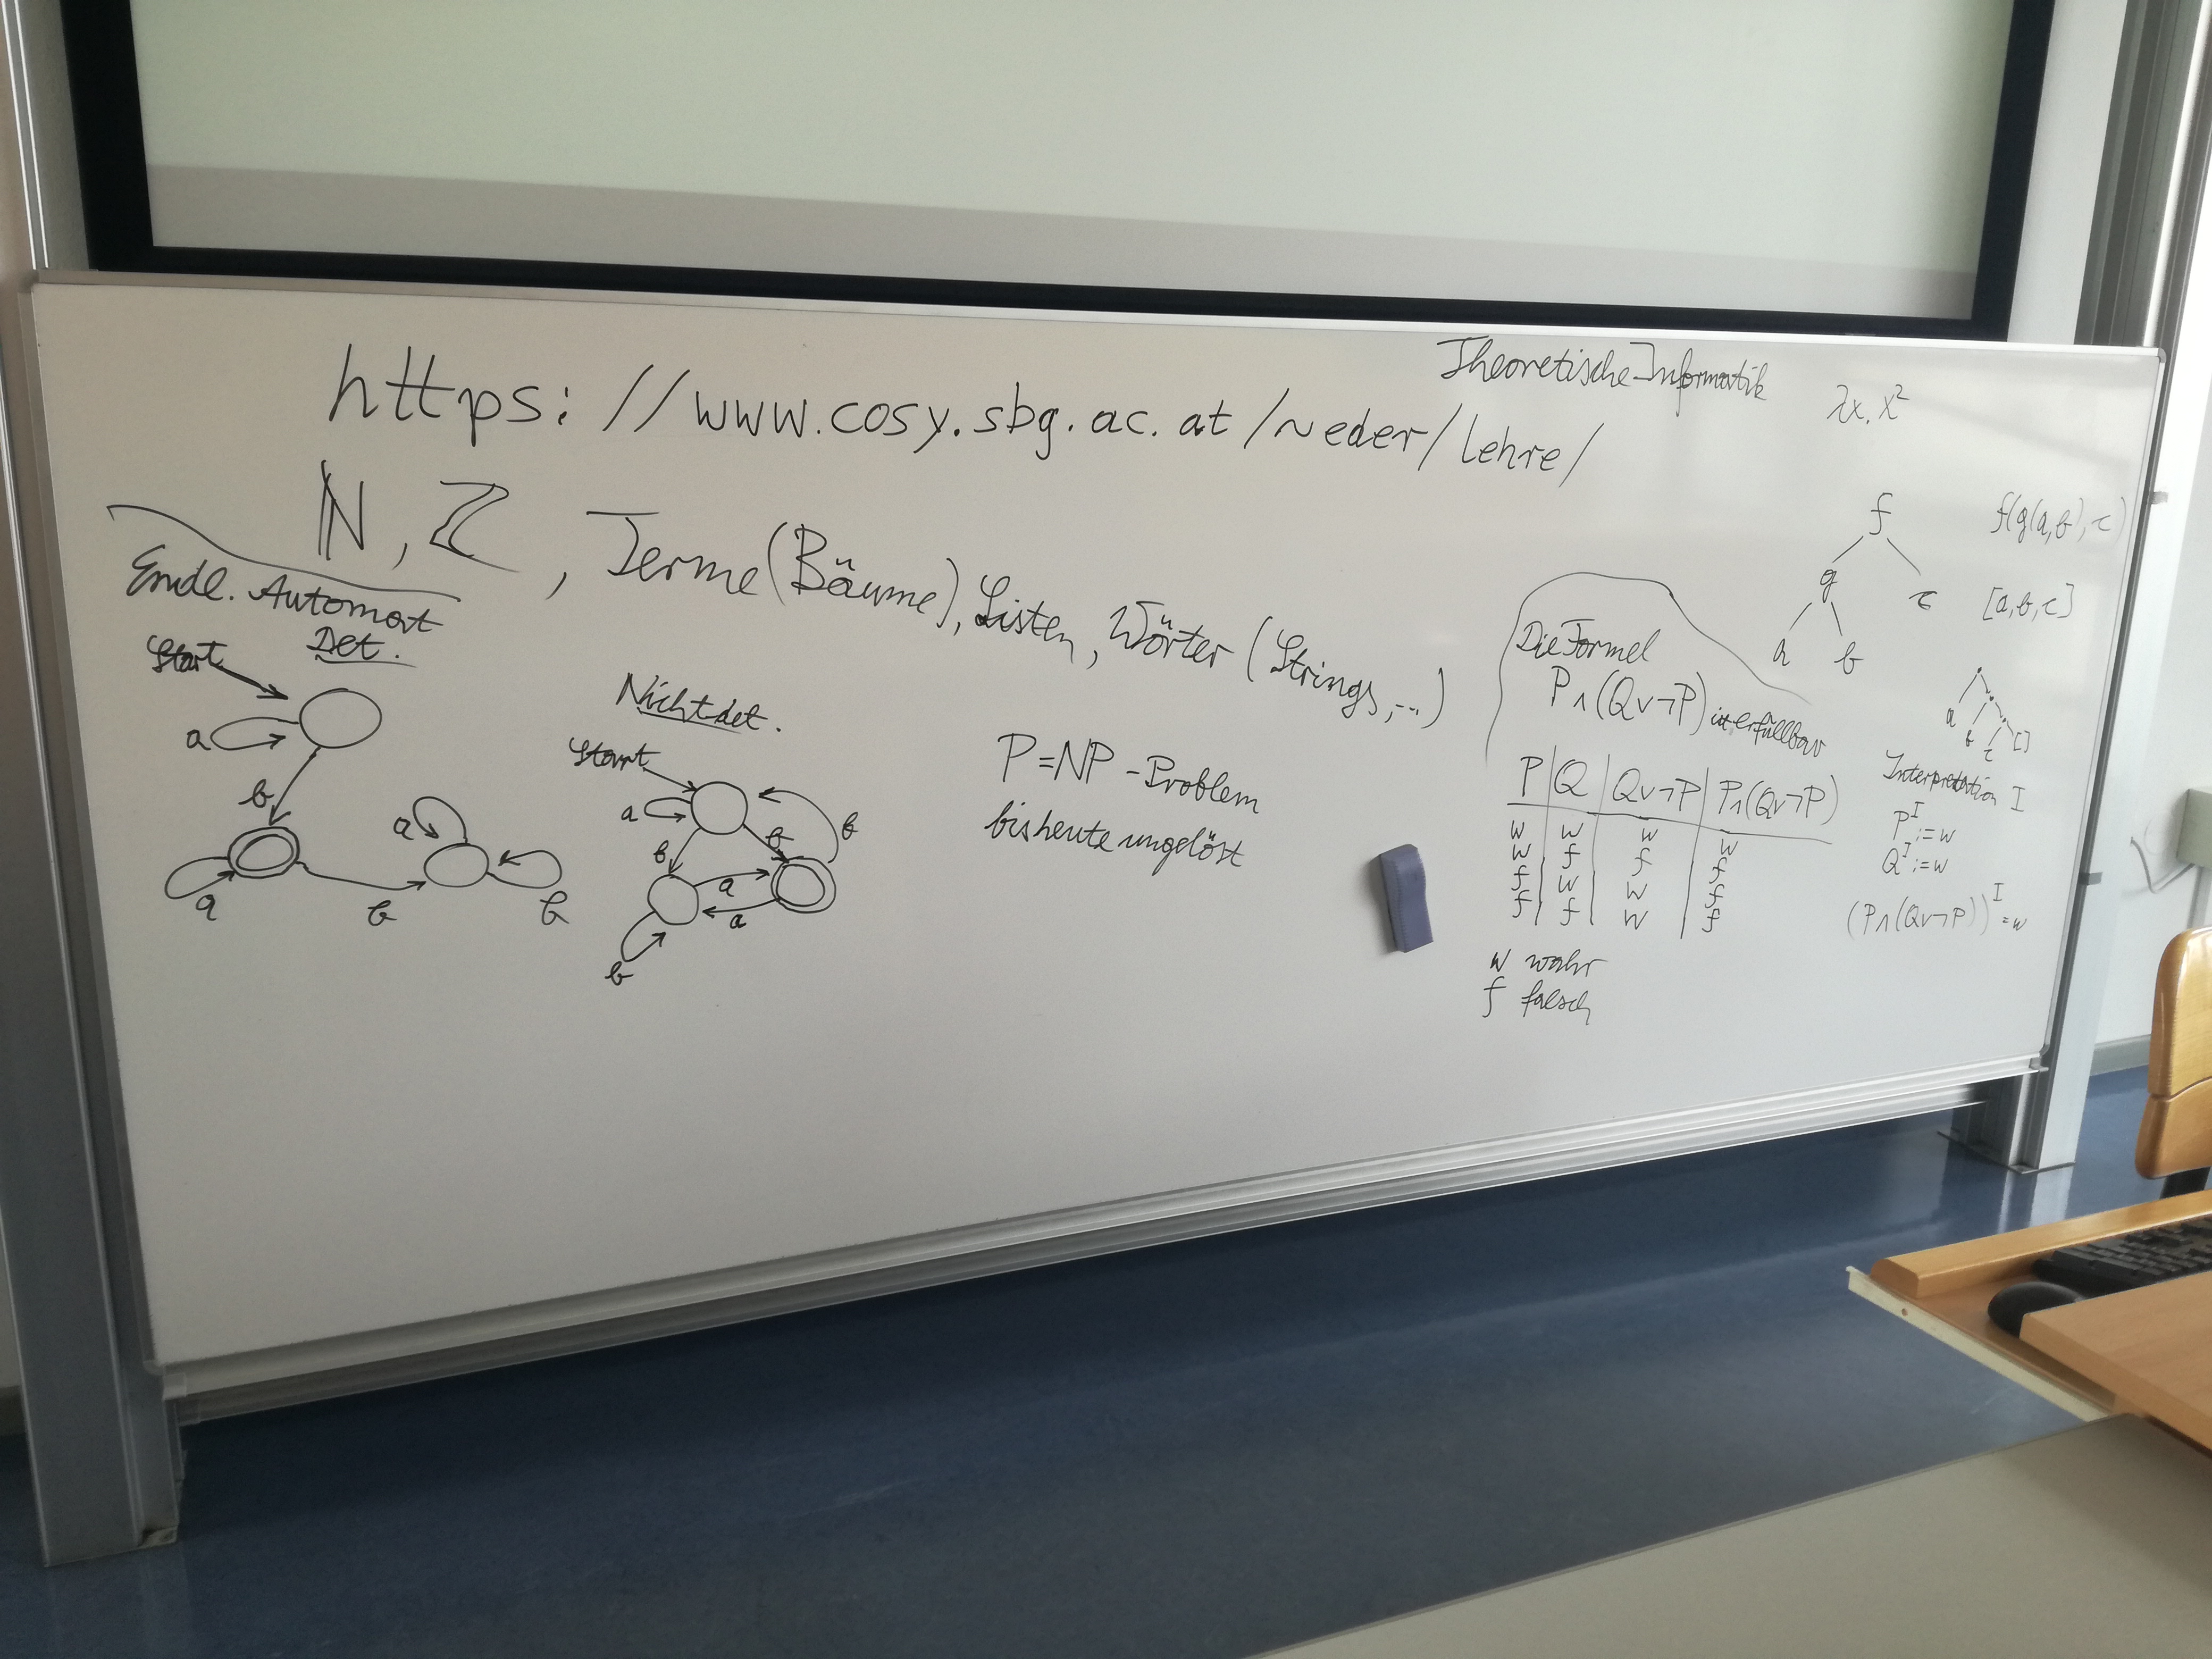 Theoretische Informatik
λx. x²
https://www.cosy.sbg.ac.at/~eder/lehre/
ℕ, ℤ, Terme (Bäume), Listen, Wörter (Strings, ...)
Endl. Automat
Det.
Start
a
b
a
b
a
b
Nichtdet.
Start
a
b
b
b
a
a
b
P=NP-Problem
bis heute ungelöst
Die Formel
P∧(Q∨¬P) ist erfüllbar
P | Q | Q∨¬P | P∧(Q∨¬P)
w | w | w | w
w | f | f | f
f | w | w | f
f | f | w | f
w wahr
f falsch
f
g c
a b
f(g(a,b),c)
[a,b,c]
a
b
c
[]
Interpretation I
P^I := w
Q^I := w
(P∧(Q∨¬P))^I = w